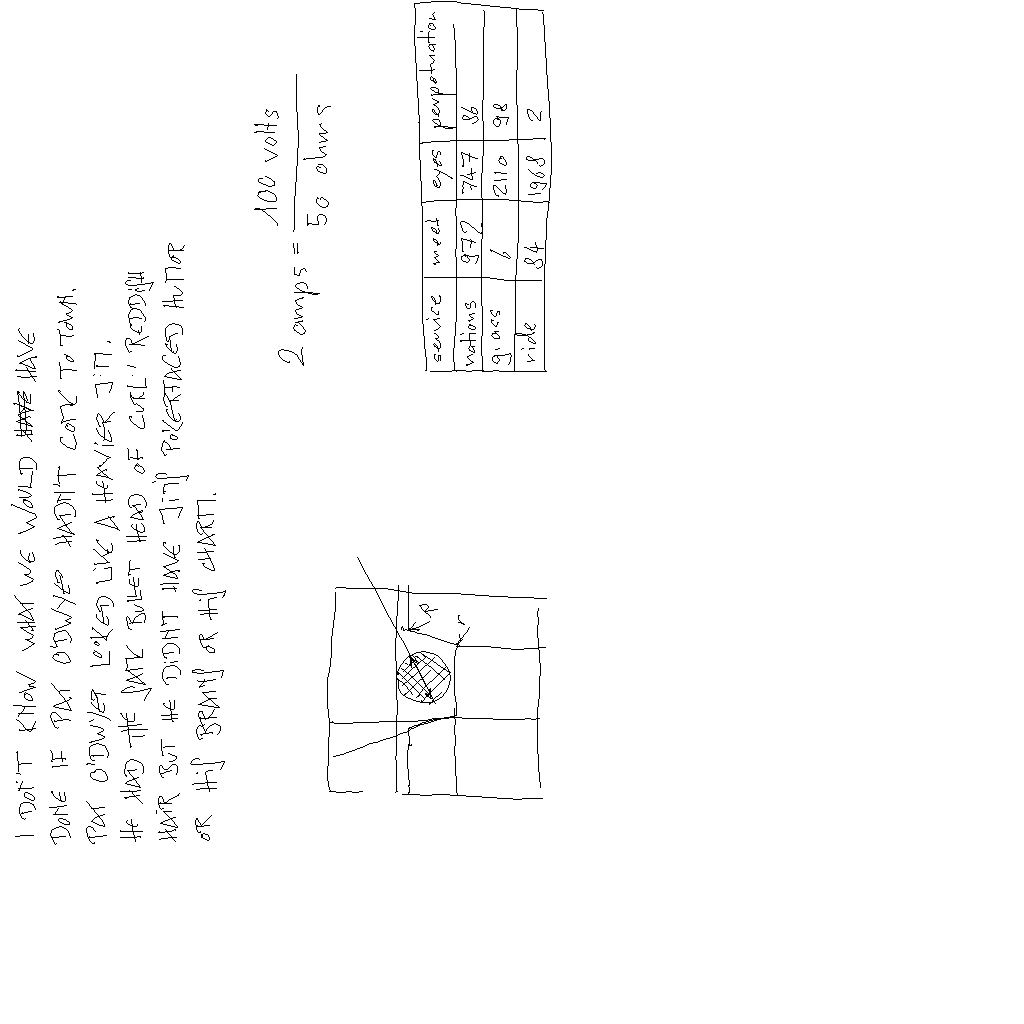 I DON'T KNOW WHAT WE WOULD HAVE HAVE
DONE IF PAT O'DWYER HADN'T COME TO TOWN.
PAT O'DWYER LOOKED LIKE A HEAVIER JIM.
HE HAD THE SAME BULLET HEAD OF CURLY REDDISH
HAIR BUT HE DIDN'T HAVE JIM'S POKERFACED HUMOR
OR HIS BRAINS OR HIS CHARM.
2 amps = 100 volts
50 ohms
service meet eyes perpetuation
nations 972 747 36
glass 6 2110 98
ride 84 1968 2
p
r